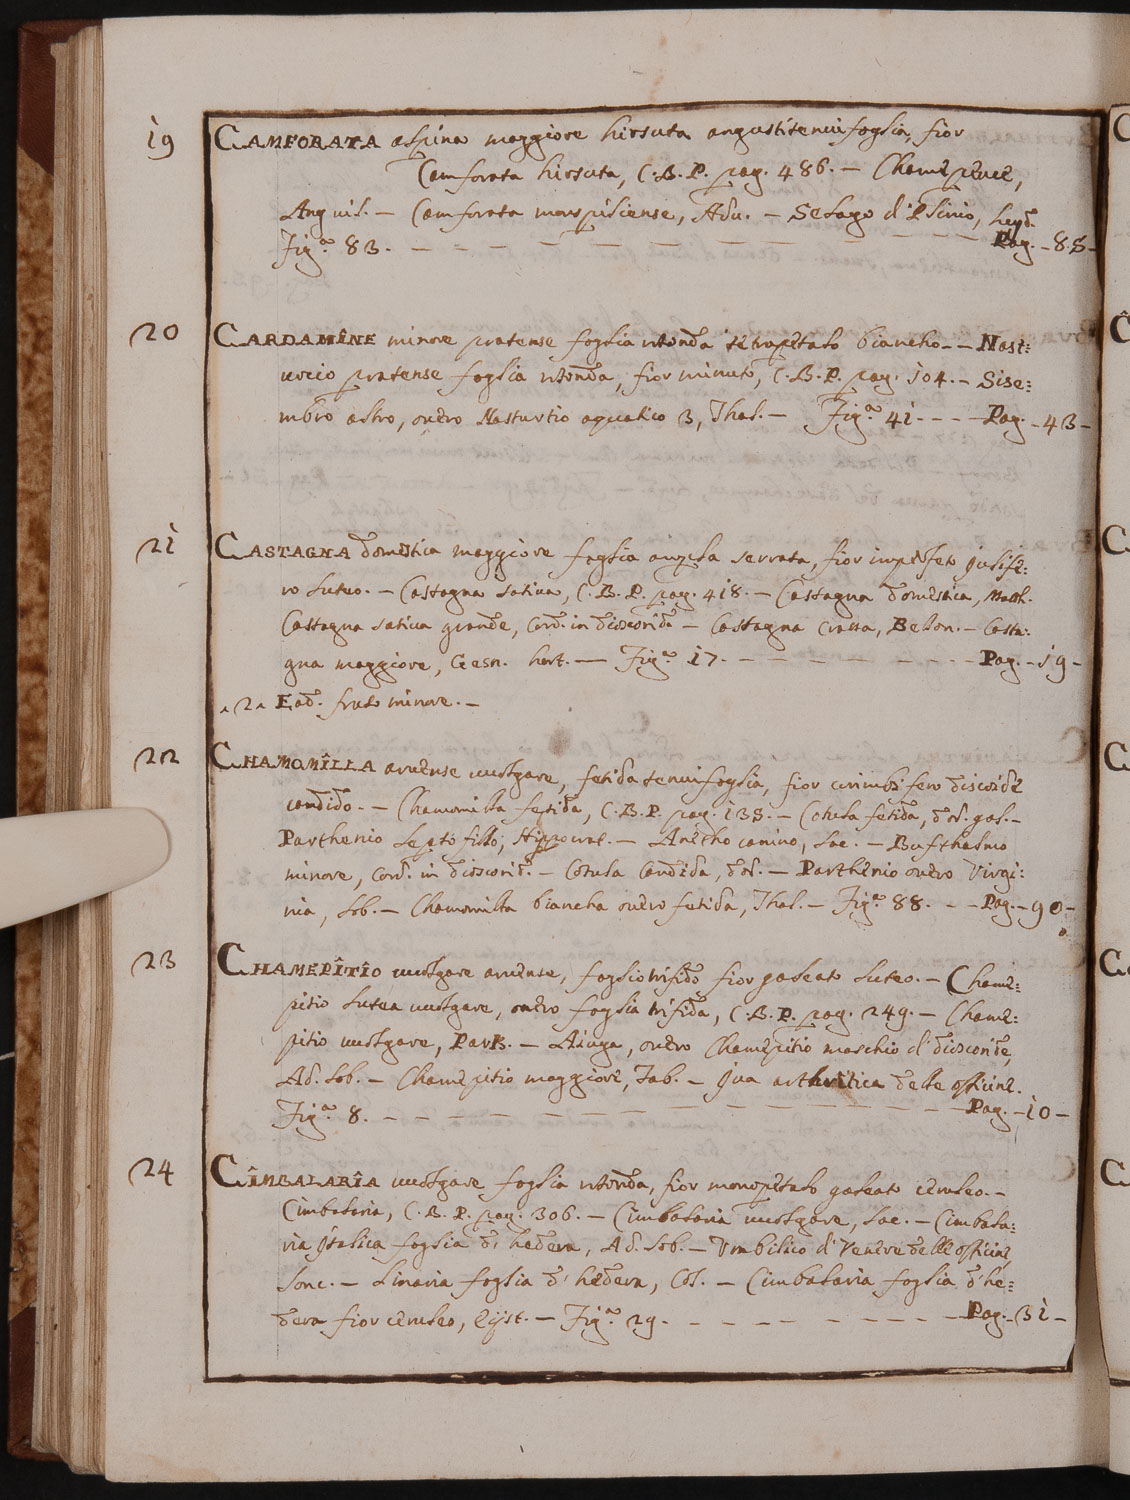 19 CAMFORATA alpina maggiore hirsuta angustitenuifoglia, fior
Camforata hirsuta, C.B.P. pag. 486. — Chamepeuce,
Anguil. — Camforata monspiliense, Adu. — Selago d'Plinio,
Figa. 83. — — — Pag. - 85 -
20 CARDAMÎNE minore pratense foglia rotonda tetrapetalo biancho - - Nast:
urcio pratense foglia rotonda, fior minuto, C.B.P. pag. 104. — Sise:
mbro altro, overo Nasturtio aquatico 3, Thal. — Figa. 41 - - - - Pag. - 43 -
21 CASTAGNA domestica maggiore foglia ampla serrata, fior imperfeto julife:
ro luteo. — Castagna sativa, C.B.P. pag. 418. — Castagna domestica, Matth.
Castagna sativa grande, Cord. in dioscoride — Castagna crassa, Belon. — Casta:
gna maggiore, Gesn. hort. — Figa. 17. - - - - - - Pag. - 19 -
^ 2 ^ Ead. fruto minore. —
22 CHAMOMÎLLA arvense vulgare, fetida tenuifoglia, fior corimbifero discoide
candido. — Chamomilla fetida, C.B.P. pag. 135. — Cotula fetida, dod. gal. —
Parthenio leptofillo, Hippocrat. — Anetho canino, Lac. — Bufthalmo
minore, Cord. in dioscorid. — Cotula candida, dod. — Parthenio overo Virgi:
nia, Lob. — Chamomilla biancha overo fetida, Thal. — Figa. 88. - - - Pag. - 90 -
23 CHAMEPÎTÎO vulgare arvense, foglio trifido fior galeato luteo. — Chame:
pitio lutea vulgare, overo foglia trifida, C.B.P. pag. 249. — Chame:
pitio vulgare, Park. — Aiuga, overo Chamepitio maschio d'dioscoride,
Ad. Lob. — Chamepitio maggiore, Tab. — Jua arthritica delle officine.
Figa. 8. — — — Pag. - 10 -
24 CÎMBALARÎA vulgare foglia rotonda, fior monopetalo galeato ceruleo. —
Cimbalaria, C.B.P. pag. 306. — Cimbalaria vulgare, Lac. — Cimbala:
ria Jtalica foglia d'hedera, Ad. Lob. — Vmbilico d'Venere delle officine,
Lonc. — Linaria foglia d'hedera, Col. — Cimbalaria foglia d'he:
dera fior ceruleo, Eyst. — Figa. 29. - - - - - - Pag. - 31 -